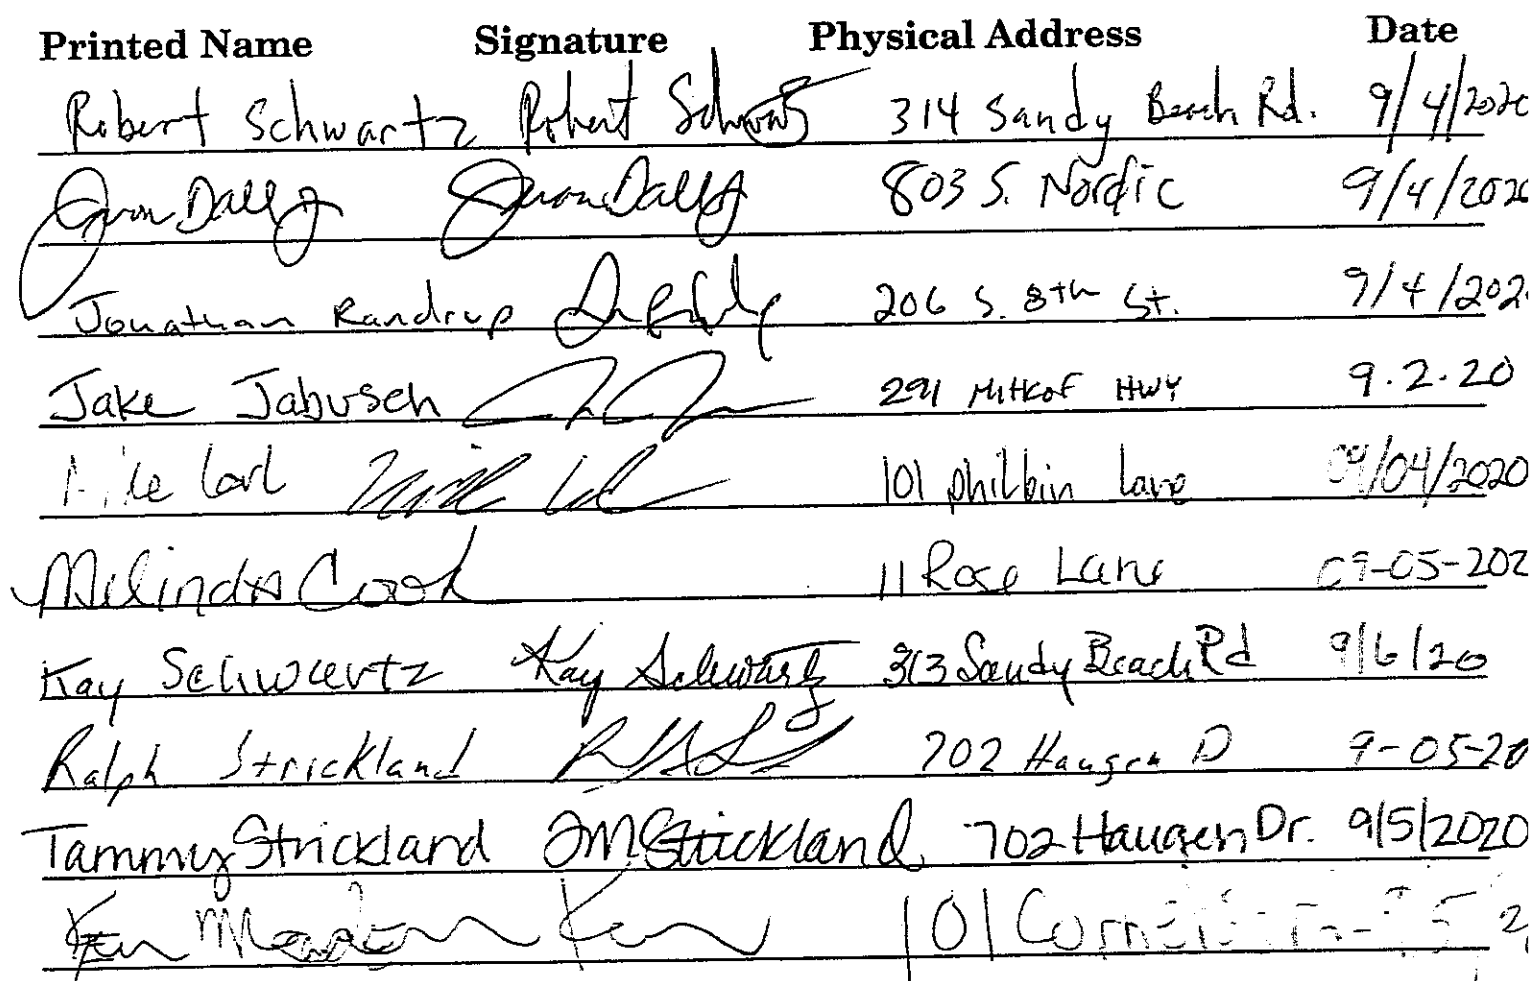 Printed Name Signature Physical Address Date
Robert Schwartz Robert Schwartz 314 Sandy Beach Rd. 9/4/2020
803 S. Nordic 9/4/2020
Jonathan Randrup 206 S. 8th St. 9/4/202
Jake Jabusch 291 Mitkof HWY 9.2.20
101 philbin Lane 09/04/2020
Melinda Cook 11 Rose Lane 09-05-202
Kay Schwartz Kay Schwartz 313 Sandy Beach Rd 9/6/20
Ralph Strickland 702 Haugen D 9-05-20
Tammy Strickland TM Strickland 702 Haugen Dr. 9/5/2020
Ken Ken 101